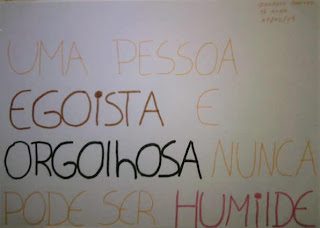 UMA PESSOA
EGOiSTA E
ORGOlhOSA NUNCA
PODE SER HUMilDE